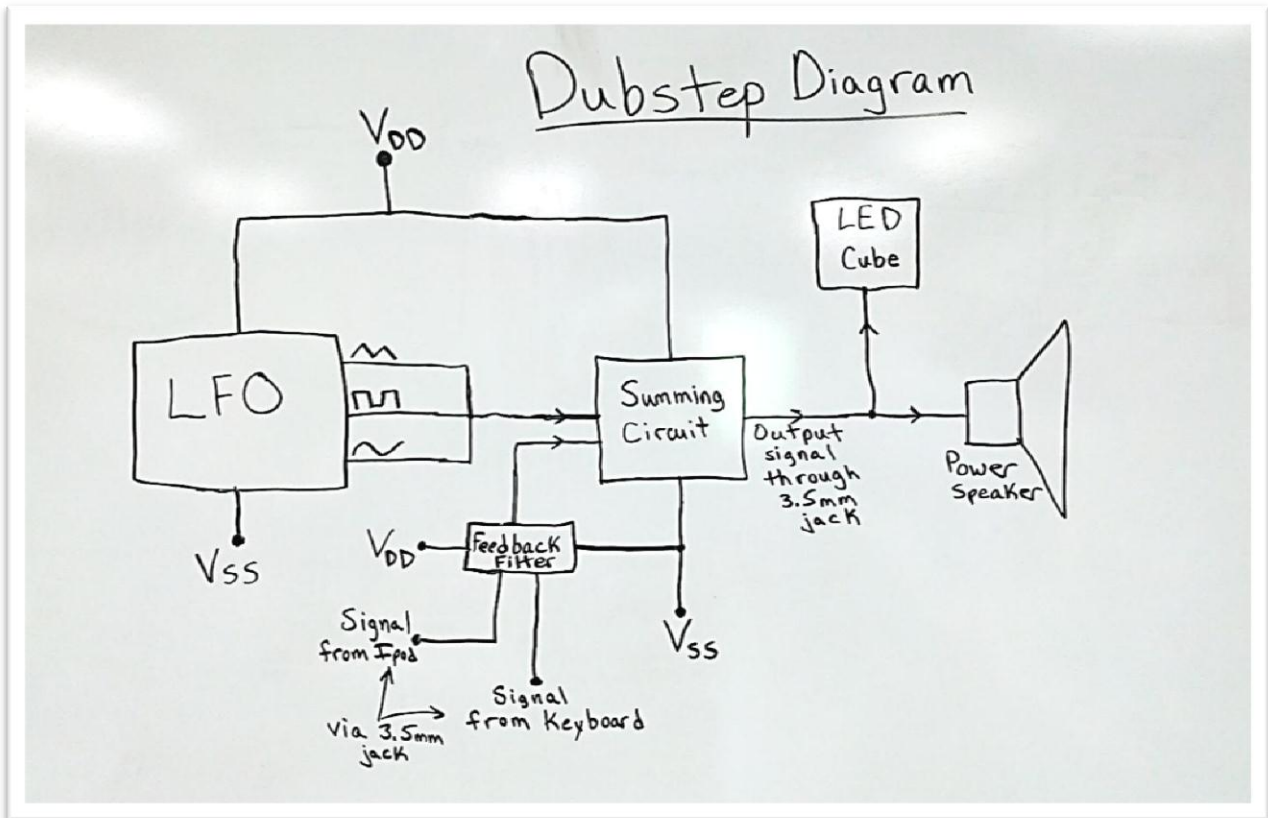 Dubstep Diagram
VDD
LED
Cube
LFO
Summing
Circuit
Output
signal
through
3.5mm
jack
Power
Speaker
VSS
VDD
Feedback
Filter
VSS
Signal
from Ipod
via 3.5mm
jack
Signal
from Keyboard